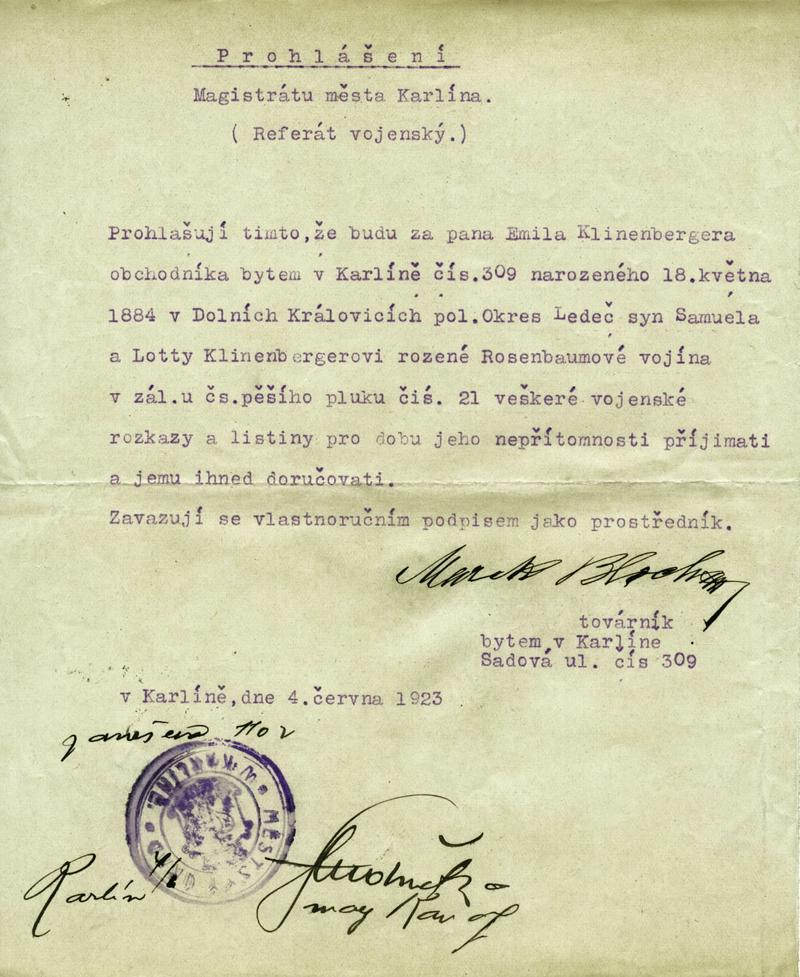 Prohlášení
Magistrátu města Karlína.
( Referát vojenský.)
Prohlašují timto,že budu za pana Emila Klinenbergera
obchodníka bytem v Karlíně čís.309 narozeného 18.května
1884 v Dolních Královicích pol.Okres Ledeč syn Samuela
a Lotty Klinenbergerovi rozené Rosenbaumové vojína
v zál.u čs.pěšího pluku čiś. 21 veškeré vojenské
rozkazy a listiny pro dobu jeho nepřítomnosti příjimati
a jemu ihned doručovati.
Zavazují se vlastnoručním podpisem jako prostředník.
Marek Bloch
továrník
bytem v Karlíne
Sadová ul. cís 309
v Karlíně,dne 4.června 1923
Karlín 4/6